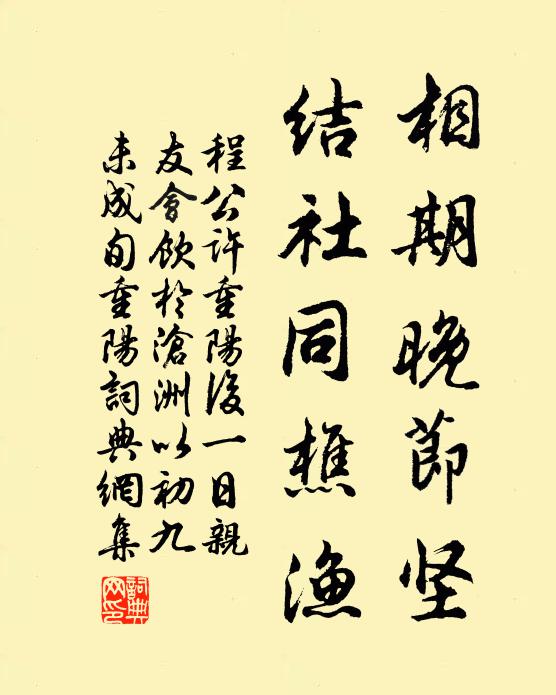 相期晚節坚
结社同樵渔
程公许重陽後一日親
友會飲於滄洲以初九
未成旬重陽詞典網集
詞典网印